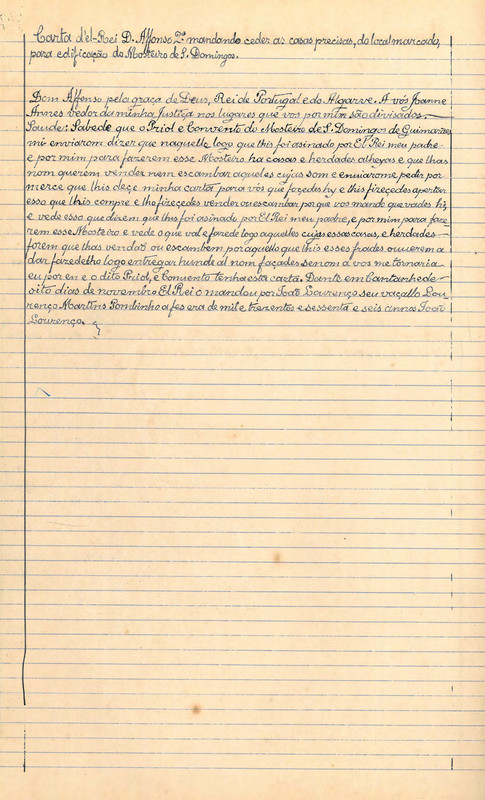 Carta d'el-Rei D. Affonso 2º mandando ceder as casas precisas, do local marcado,
para edificação do Mosteiro de S. Domingos.
Dom Affonso pela graça de Deus, Rei de Portugal e do Algarve. A vós Joanne
Annes vedor da minha justiça nos lugares que vos por mim são divisados.
Saude: Sabede que o Priol e Convento do Mosteiro de S. Domingos de Guimarães
mi enviarom dizer que naquello logo que lhis foi asinado por El Rei meu padre
e por mim para fazerem esse Mosteiro ha casas e herdades alheyas e que lhas
nom querem vender nem escambar aqueles cujas som e enviarome pedir por
merce que lhis deçe minha carta para vós que façedes hy e lhis fizeçedes apertar
esso que lhis compre e lho fizeçedes vender ou escambar por que vos mando que vades hi,
e vede esso que dizem que lhis foi asinado por El Rei meu padre, e por mim para faze
rem esse Mosteiro e vede o que val e farede logo aquelles cujas essas casas, e herdades
forem que lhas vendaõ ou escambem por aquello que lhis esses frades ouverem a
dar fazedelho logo entregar hunde al nom façades senom a vos me tornaria
eu por en e o dito Priol, e Comvento tenha esta carta. Dante em Cantanhede
oito dias de novembro El Rei o mandou por Joaõ Lourenço seu vaçallo Lou
renço Martins Pombinho a fes era de mil e trezentos e sessenta e seis annos Joaõ
Lourenço.